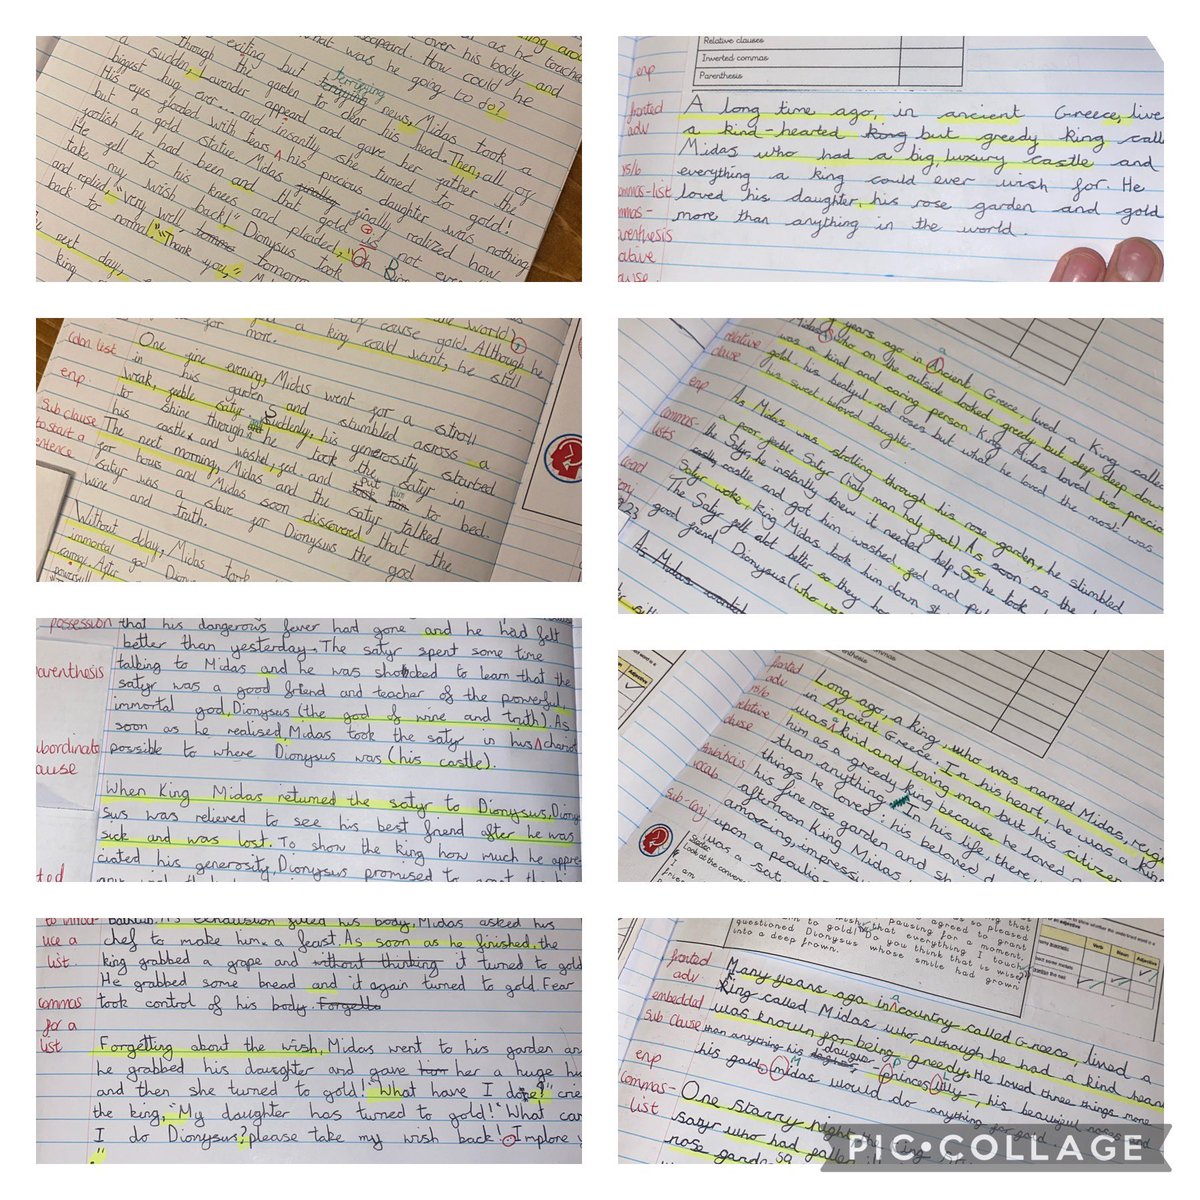 over his body, and
disappeared. How could he
what was he going to do?
exiting but terrifying news, Midas took a
through the garden to clear his head. Then, all of
a sudden, Lavender appeard and gave her father the
biggest hug ever... and insantly she turned to gold!
His eyes flooded with tears his precious daughter was nothing
but a gold statue. Midas finally realized how
foolish he had been and that gold is not
He fell to his knees and pleaded, "Oh
take my wish back!" Dionysus took
and replied, "Very well, tomorrow
back to normal." "Thank you,"
next day,
king
course gold. Although he
for more. a king could want, he still
One fine evening, Midas went for a stroll
in his garden and stumbled across a
weak, feeble satyr. Suddenly, his generosity started
to shine through he took the satyr in
his castle and washed, fed and put him to bed.
The next morning, Midas and the satyr talked
for hours and Midas soon discovered that the
satyr was a slave for Dionysus the god
wine and truth.
Without delay, Midas took
immortal god
colon list
enp.
sub clause
to start a
entence
possession
arenthesis
ubordinate
ause
that his dangerous fever had gone and he had felt
better than yesterday. The satyr spent some time
talking to Midas and he was shocked to learn that the
satyr was a good friend and teacher of the powerful,
immortal god, Dionysus (the god of wine and truth). As
soon as he realised, Midas took the satyr in his chariot
possible to where Dionysus was (his castle).
When King Midas returned the satyr to Dionysus, Diony
sus was relieved to see his best friend after he was
sick and was lost. To show the king how much he appre
ciated his generosity, Dionysus promised to grant
uce a
list
commas
for a
list
As exhaustion filled his body, Midas asked his
chef to make him a feast. As soon as he finished, the
king grabbed a grape and without thinking it turned to gold
He grabbed some bread and it again turned to gold. Fear
took control of his body. Forgetto
Forgetting about the wish, Midas went to his garden an
he grabbed his daughter and gave her a huge hu
and then she turned to gold! "What have I done?" crie
the king, "My daughter has turned to gold!" "What can
I do Dionysus? please take my wish back! I implore y
Relative clauses
Inverted commas
Parenthesis
enp
fronted
adv
rs/b
ommas-list
mmas-
arenthesis
A long time ago, in ancient Greece, live
a kind-hearted king but greedy King calle
Midas who had a big, luxury castle and
everything a king could ever wish for. He
loved his daughter, his rose garden and gold
more than anything in the world.
relative
clause
enp
commas-
lists
years ago in Ancient Greece, lived a King called
Midas. Who on the outside looked greedy but deep down
was a kind and caring person. King Midas loved his precious
gold, his beatyful red roses but what he loved the most was
his sweet, beloved daughter.
As Midas was strolling through his rose garden, he stumbled
a poor, feeble Satyr (half man half goat). As soon as the
the Satyr, he instantly knew it needed help. So he took
castle and got him washed, fed and put
Satyr woke, King Midas took him down
The Satyr felt alot better so they
good friend Dionysus (who was
As Midas
fronted
adv
rs/b
relative
clause
Ambitious
vocab
sub-conj
Long ago, a king, who was named Midas, reign
in Ancient Greece. In his heart, he was a king
was a kind and loving man but his citizen
him as a greedy king because he loved
than anything. In his life, there
things he loved: his beloved
his fine rose garden and
afternoon King Midas
amoozing, impressiv
upon a peculia
was a sat
Starter
Look at the conver
I am
pausing for a moment,
agreed to grant
that everything I touch
turn to gold! "Do you think that is wise?"
questioned Dionysus whose smile had grown
into a deep frown.
Verb
Noun
Adjective
fronted
adv.
embedded
sub clause
enp
commas-
list
Many years ago in a country called Greece, lived a
King called Midas who, although he had a kind heart
was known for being greedy. He loved three things more
than anything his daughter princess Lilly, his beautiful roses and
his gold. Midas would do anything for gold.
One starry night the king
satyr who had fallen
rose garde
PIC•COLLAGE